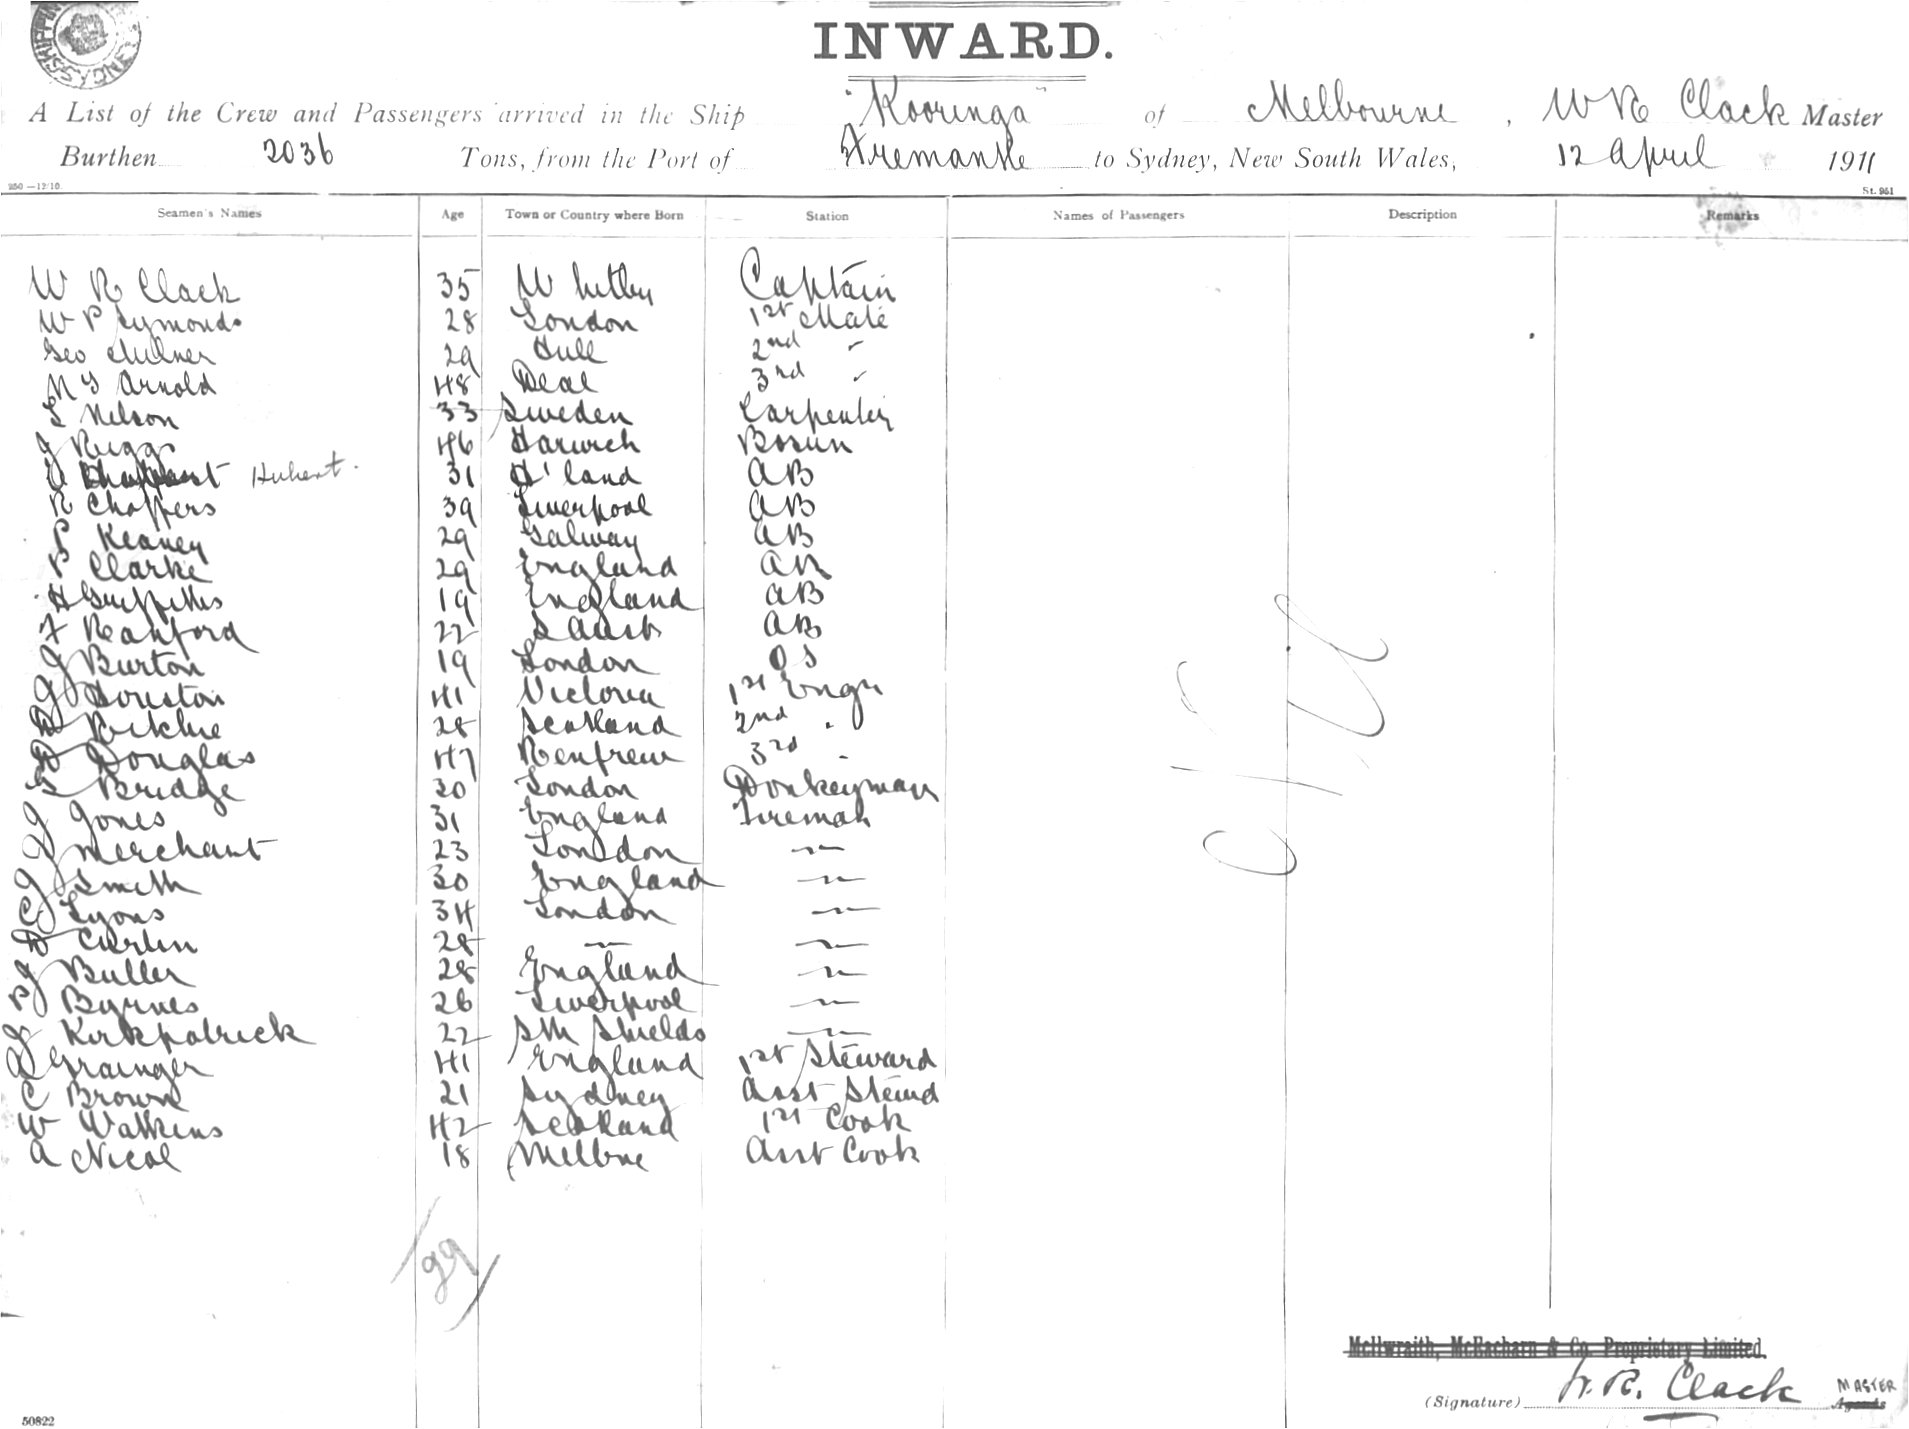 INWARD.
A List of the Crew and Passengers arrived in the Ship "Kooringa" of Melbourne, W R Clack Master
Burthen 2036 Tons, from the Port of Fremantle to Sydney, New South Wales, 12 April 1911
250—12/10. St. 951
Seamen's Names Age Town or Country where Born Station Names of Passengers Description Remarks
W R Clack 35 Whitby Captain
W P Symonds 28 London 1st Mate
Geo Milner 29 Hull 2nd "
N S Arnold 48 Deal 3rd "
L Nelson 33 Sweden Carpenter
J Riggs 46 Harwich Bosun
Hubert 31 H'land AB
R Choffers 39 Liverpool AB
P Keaney 29 Galway AB
P Clarke 29 England AB
H Griffiths 19 England AB
F Ranford 22 S Aust AB
J Burton 19 London OS
J Houston 41 Victoria 1st Engr
D Ritchie 28 Scotland 2nd "
D Douglas 47 Renfrew 3rd "
G Bridge 30 London Donkeyman
J Jones 31 England Fireman
J Merchant 23 London "
J Smith 30 England "
C Lyons 34 London "
D Curtin 28 " "
J Butler 28 England "
P Byrnes 26 Liverpool "
J Kirkpatrick 22 Sth Shields "
A Grainger 41 England 1st Steward
C Brown 21 Sydney Asst Stewd
W Watkins 42 Scotland 1st Cook
A Nicol 18 Melbne Asst Cook
29
Nil
McIlwraith, McEacharn & Co. Proprietary Limited.
(Signature) W. R. Clack MASTER Agents
50822